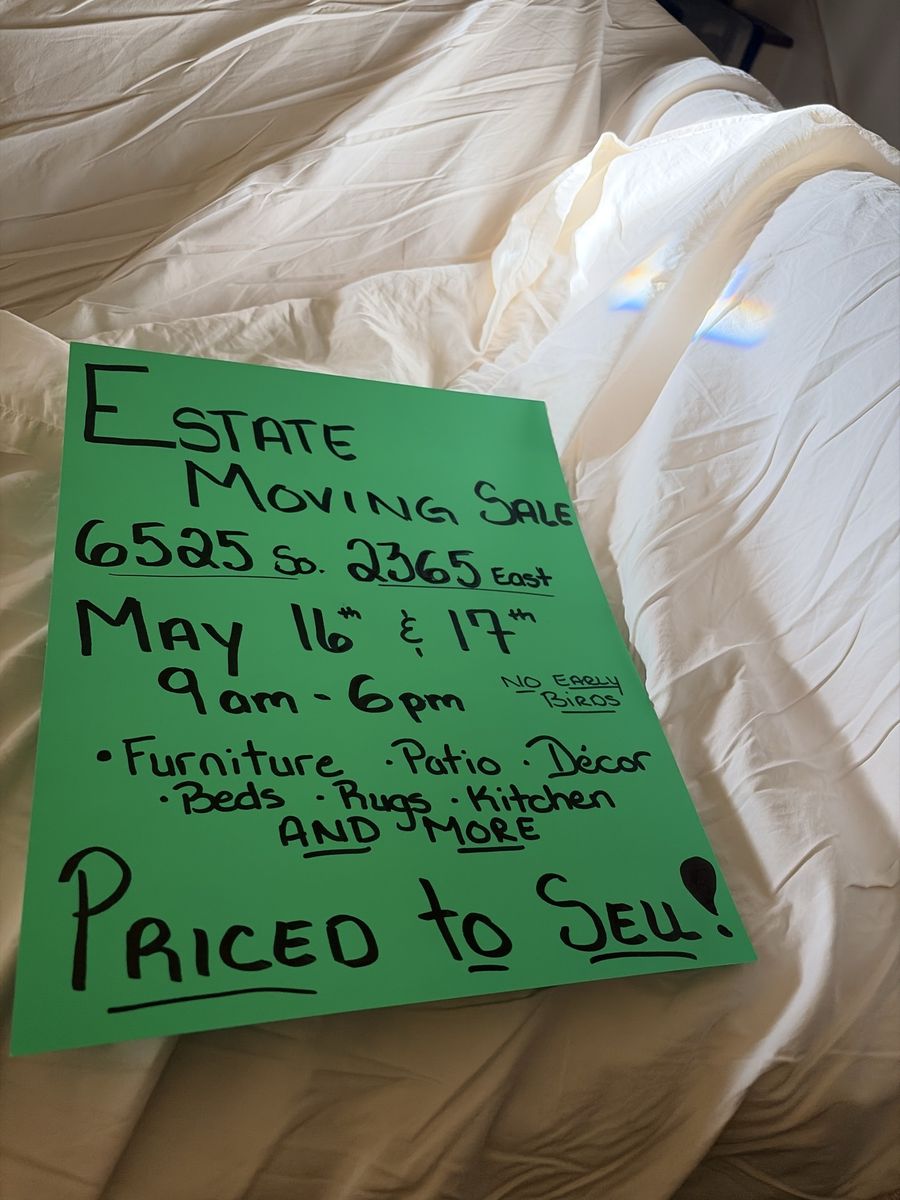 ESTATE
MOVING SALE
6525 So. 2365 East
MAY 16th & 17th
9am - 6pm NO EARLY
BIRDS
• Furniture • Patio • Décor
• Beds • Rugs • Kitchen
AND MORE
PRICED to SELL!